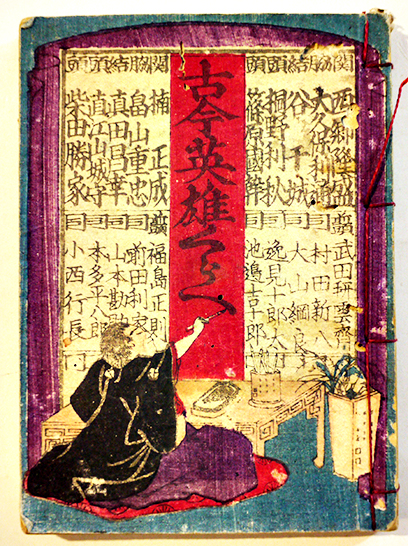 関 西郷隆盛
脇 大久保利通
結 谷干城
頭 桐野利秋
頭 篠原國幹
武田耕雲斎
同 村田新八
同 大山綱良
同 逸見十郎太
同 池邉吉十郎
古今英雄くらべ
関 楠正成
脇 畠山重忠
結 真田昌幸
頭 直江山城守
頭 柴田勝家
福島正則
同 前田利家
同 山本勘助
同 本多平八郎
同 小西行長